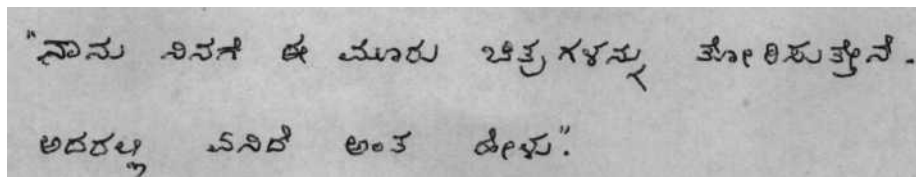 "ನಾನು ನಿನಗೆ ಈ ಮೂರು ಚಿತ್ರಗಳನ್ನು ತೋರಿಸುತ್ತೇನೆ.
ಅದರಲ್ಲಿ ಏನಿದೆ ಅಂತ ಹೇಳು".